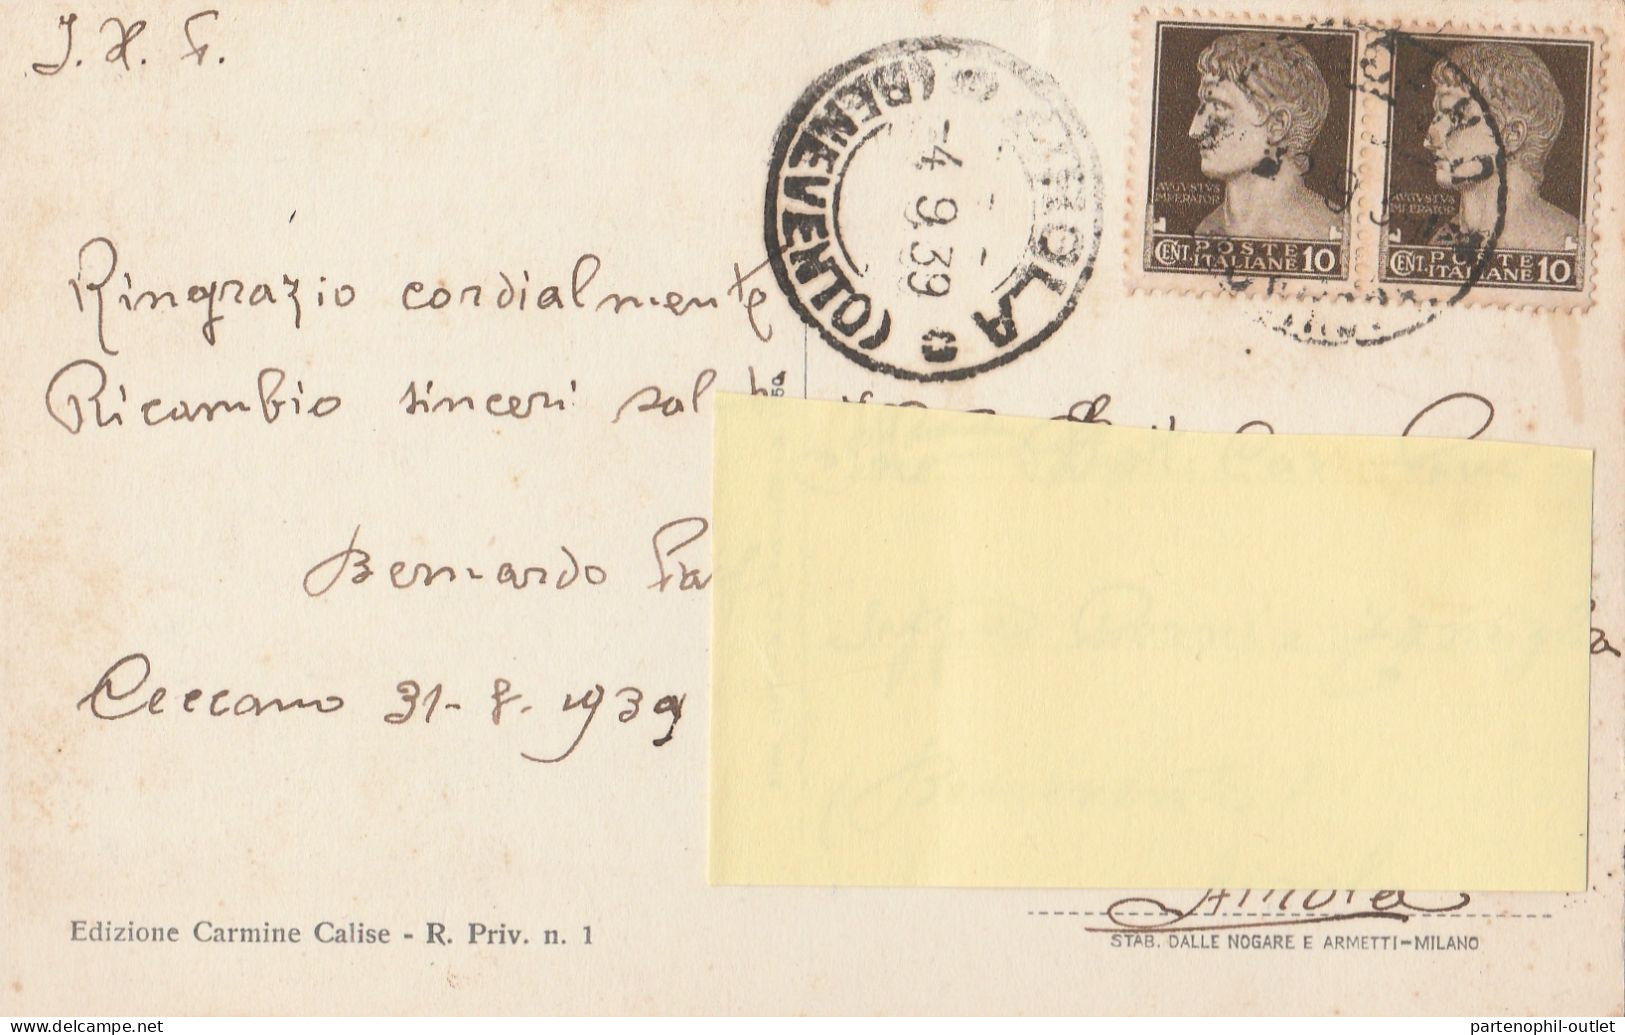 J. H. F.
(BENEVENTO)
-4 9.39
AVGVSTVS
IMPERATOR
CENT. POSTE
ITALIANE 10
AVGVSTVS
IMPERATOR
CENT. POSTE
ITALIANE 10
Ringrazio cordialmente
Ricambio sinceri
Bernardo
Ceccano 31-8-1939
Edizione Carmine Calise - R. Priv. n. 1
STAB. DALLE NOGARE E ARMETTI-MILANO
www.delcampe.net
partenophil-outlet